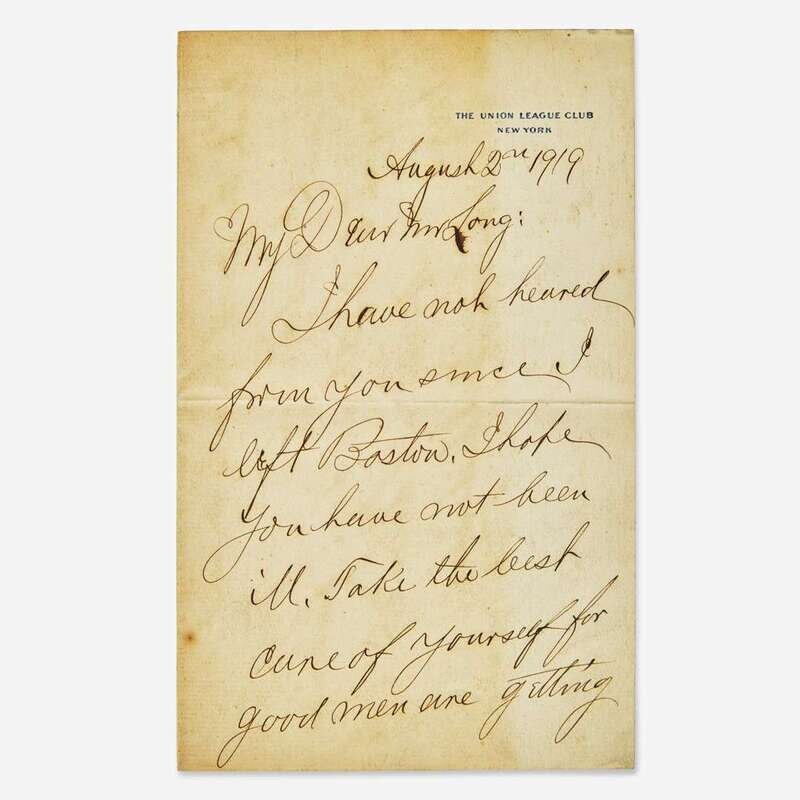 THE UNION LEAGUE CLUB
NEW YORK
August 2nd 1919
My Dear Mr Long:
I have not heared
from you since I
left Boston. I hope
you have not been
ill. Take the best
care of yourself for
good men are getting